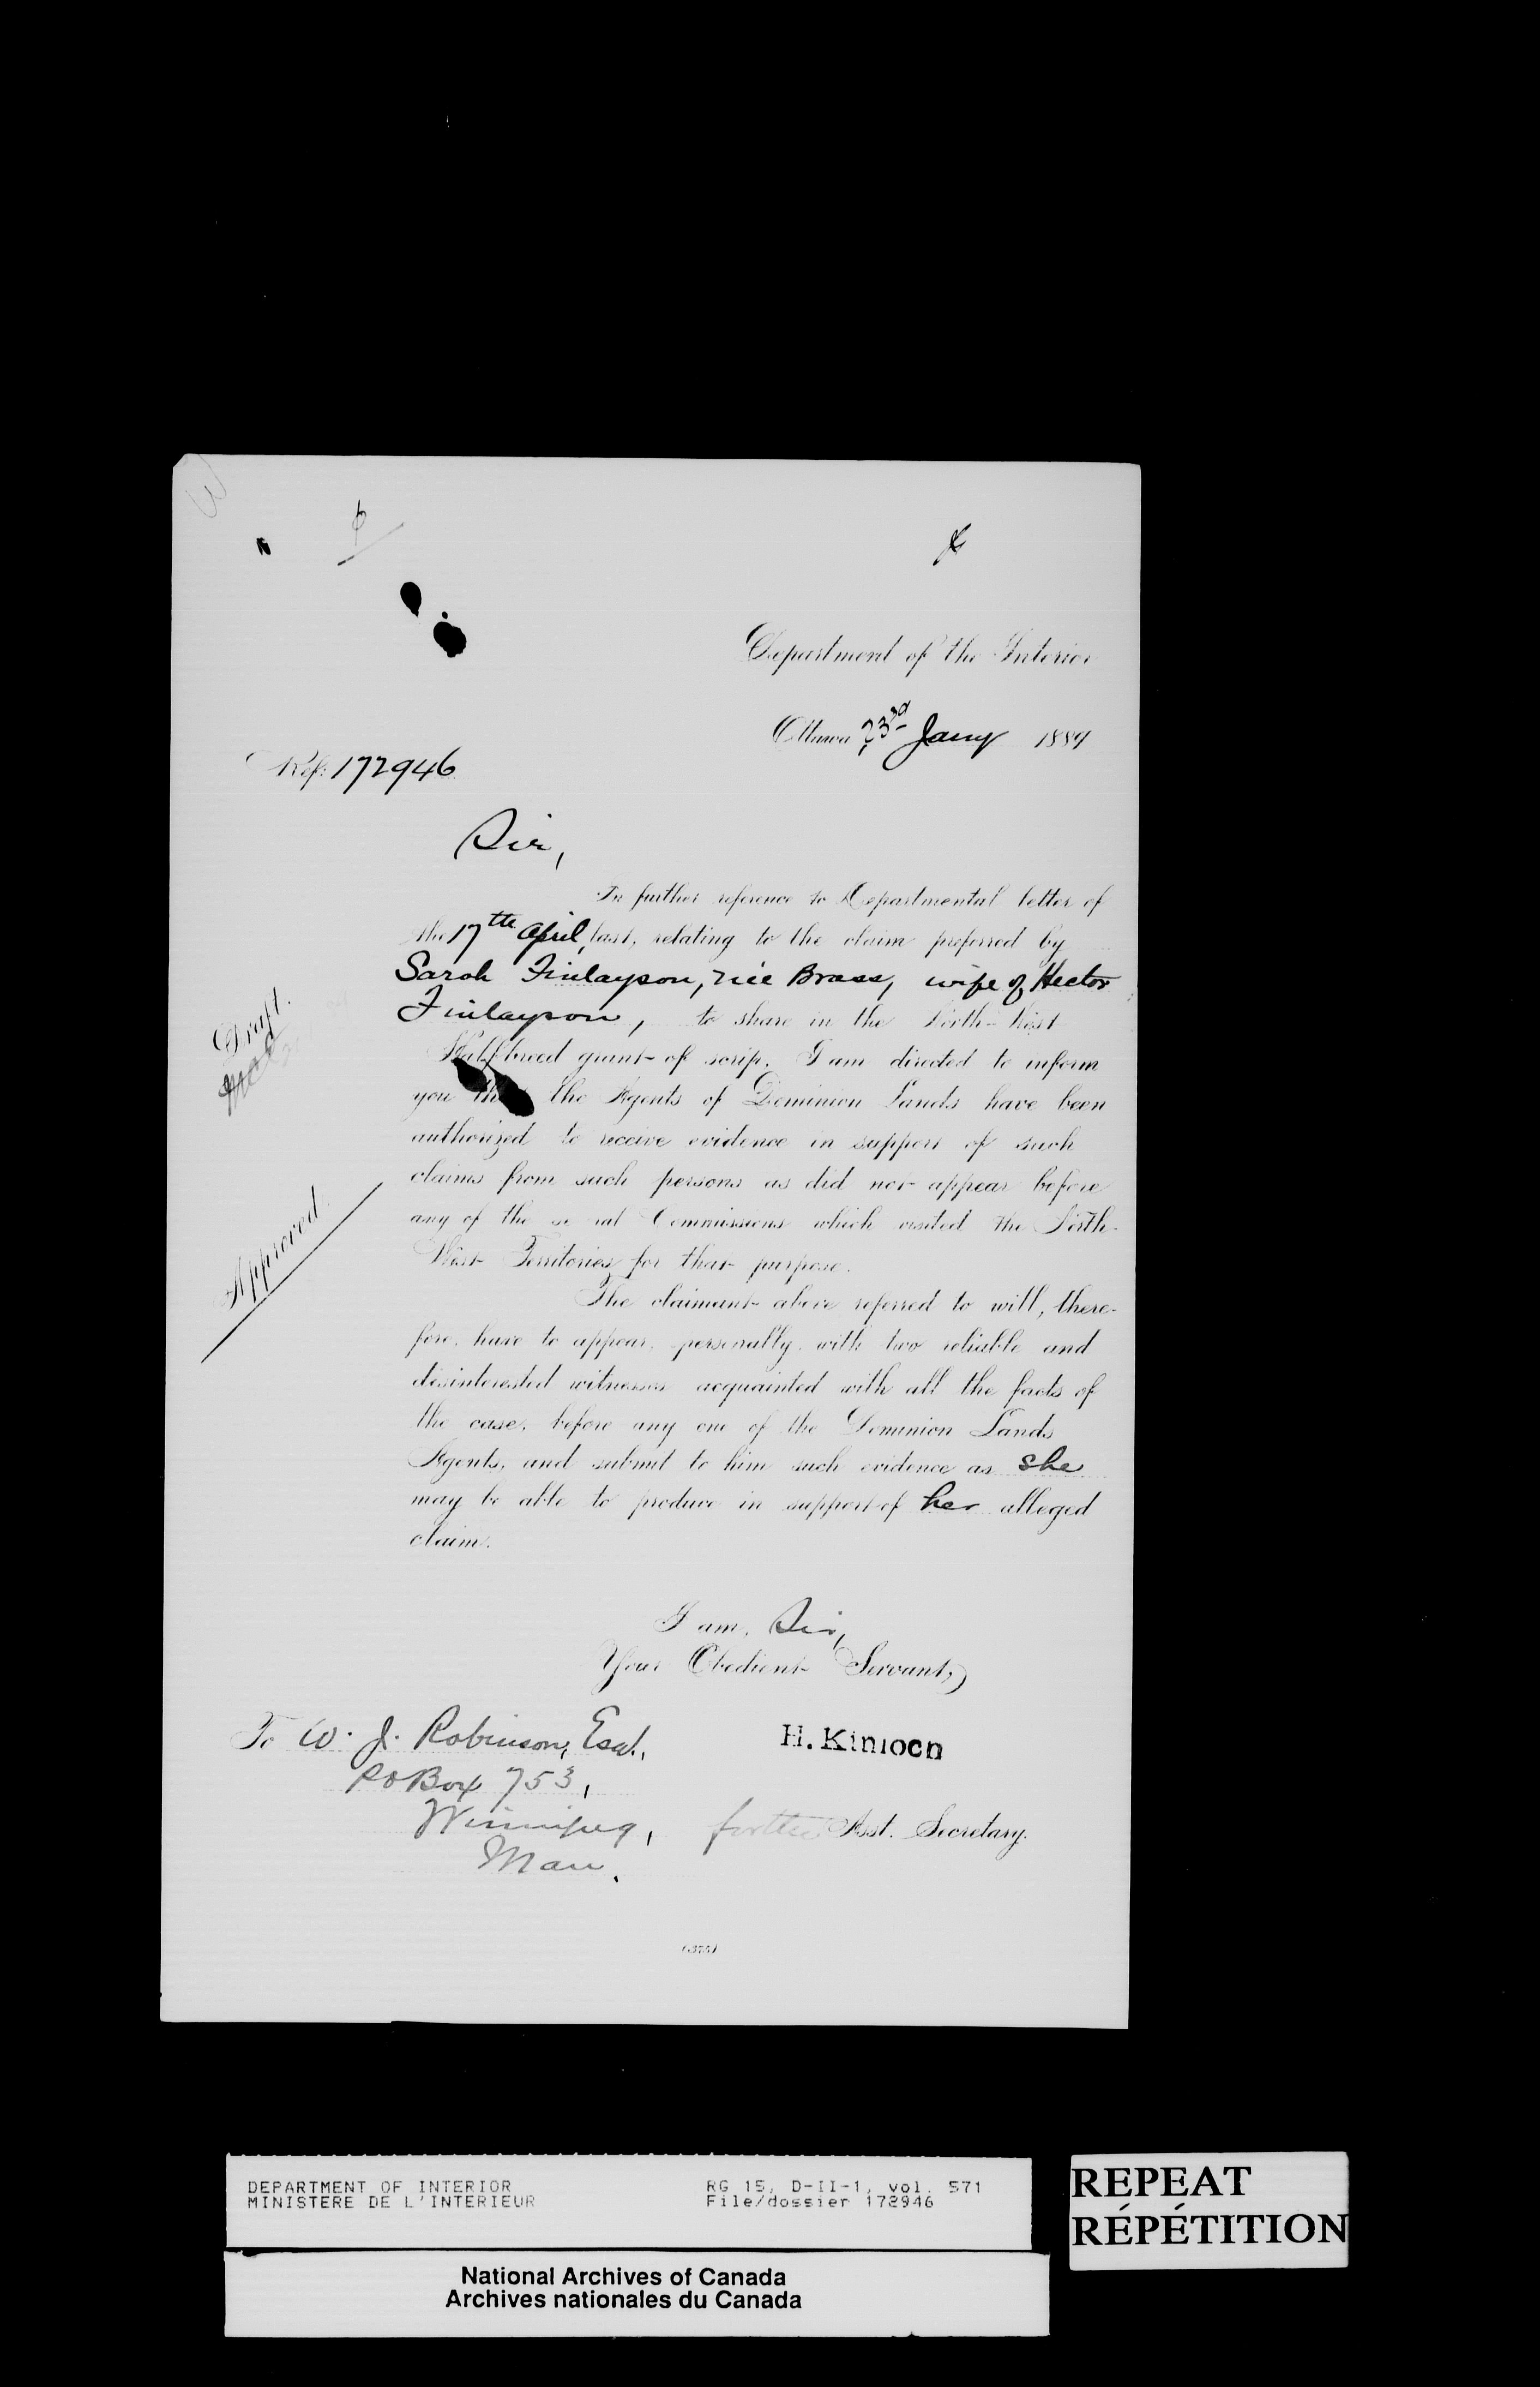 Department of the Interior
Ottawa 23rd Jany 1889
Ref: 172946
Sir,
In further reference to Departmental letter of
the 17th April, last, relating to the claim preferred by
Sarah Finlayson, née Brass, wife of Hector
Finlayson, to share in the North-West
Halfbreed grant of scrip, I am directed to inform
you the Agents of Dominion Lands have been
authorized to receive evidence in support of such
claims from such persons as did not appear before
any of the Commissions which visited the North-
West Territories for that purpose.
The claimant above referred to will, there-
fore, have to appear, personally, with two reliable and
disinterested witnesses acquainted with all the facts of
the case, before any one of the Dominion Lands
Agents, and submit to him such evidence as she
may be able to produce in support of her alleged
claim.
I am, Sir,
Your Obedient Servant,
Draft.
Approved.
To W. J. Robinson, Esq.,
PO Box 753,
Winnipeg,
Man.
H. Kinloch
for the Asst. Secretary.
DEPARTMENT OF INTERIOR
MINISTERE DE L'INTERIEUR
RG 15, D-II-1, vol. 571
File/dossier 172946
National Archives of Canada
Archives nationales du Canada
REPEAT
RÉPÉTITION